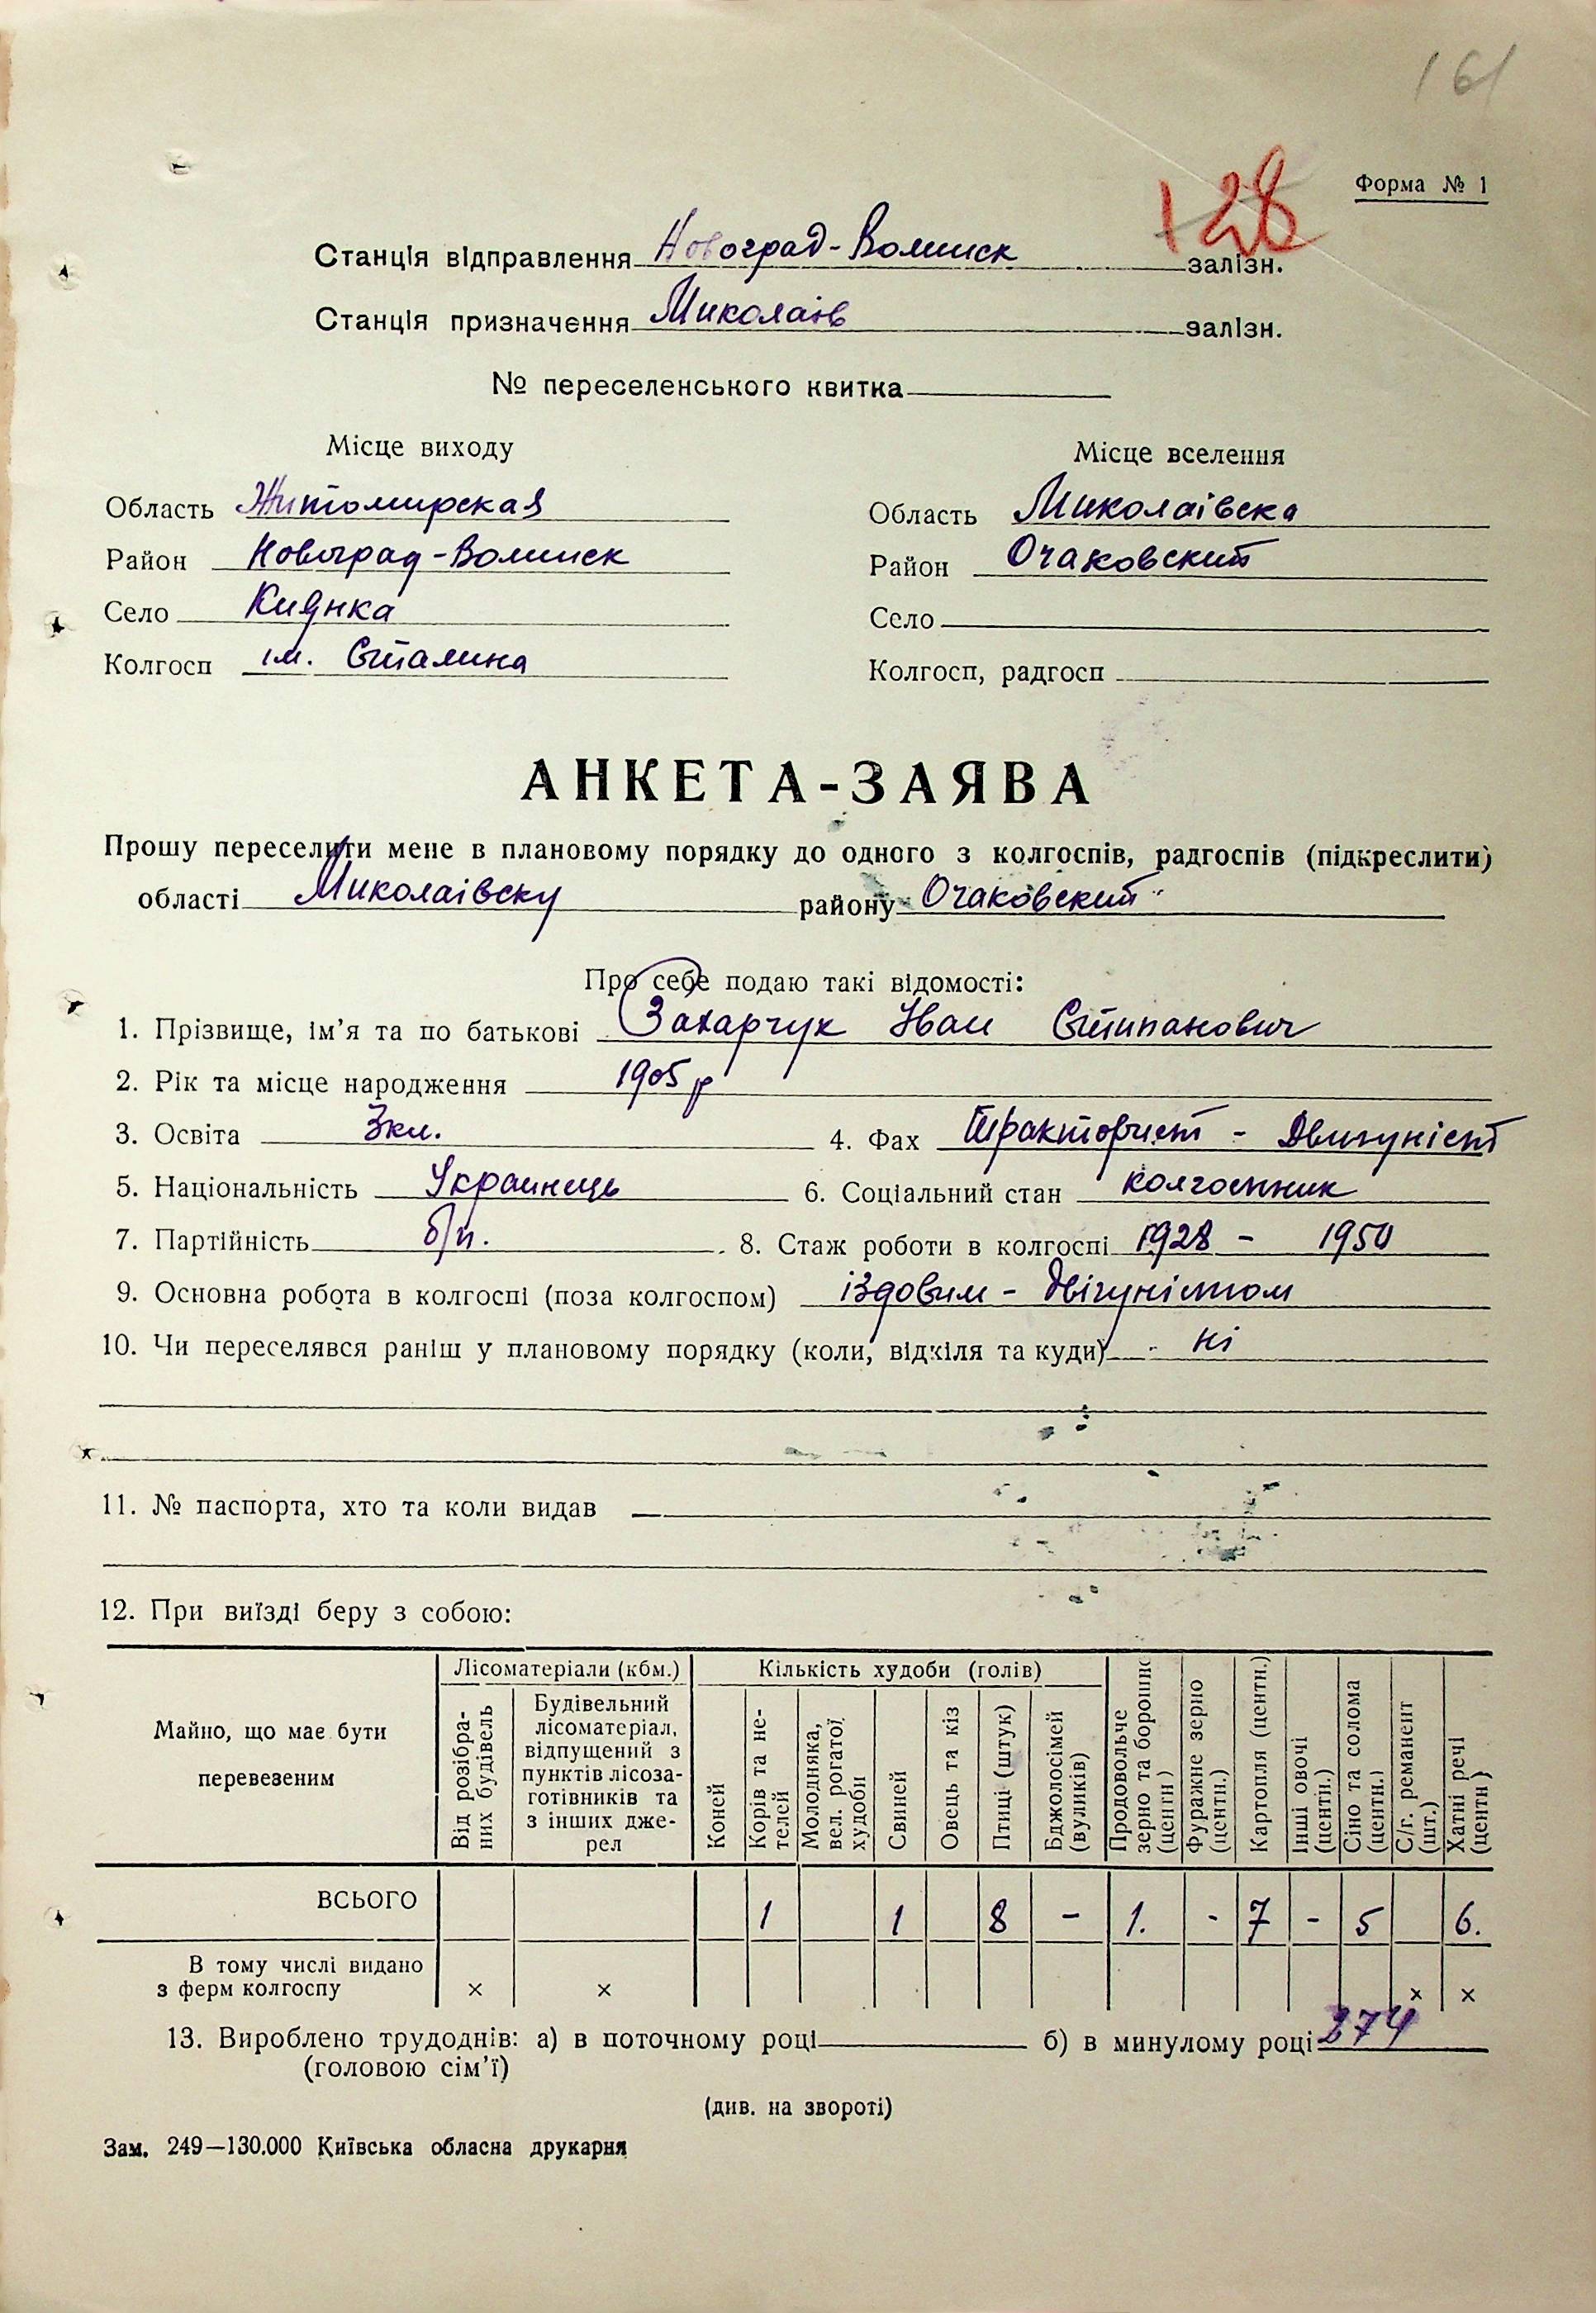 161
128
Форма № 1
Станція відправлення Новоград-Волинск залізн.
Станція призначення Миколаів залізн.
№ переселенського квитка
Місце виходу
Місце вселення
Область Житомирская
Область Миколаівска
Район Новоград-Волинск
Район Очаковский
Село Киянка
Село
Колгосп ім. Сталина
Колгосп, радгосп
АНКЕТА-ЗАЯВА
Прошу переселити мене в плановому порядку до одного з колгоспів, радгоспів (підкреслити)
області Миколаівску району Очаковский
Про себе подаю такі відомості:
1. Прізвище, ім’я та по батькові Захарчук Іван Стипанович
2. Рік та місце народження 1905 р
3. Освіта 3кл. 4. Фах Тракторист - Двигуніст
5. Національність Украинець 6. Соціальний стан колгоспник
7. Партійність б/п. 8. Стаж роботи в колгоспі 1928 - 1950
9. Основна робота в колгоспі (поза колгоспом) іздовим - двігуністом
10. Чи переселявся раніш у плановому порядку (коли, відкіля та куди) - ні
11. № паспорта, хто та коли видав
12. При виїзді беру з собою:
Майно, що має бути перевезеним
Лісоматеріали (кбм.)
Від розібраних будівель
Будівельний лісоматеріал, відпущений з пунктів лісозаготівників та з інших джерел
Кількість худоби (голів)
Коней
Корів та нетелей
Молодняка, вел. рогатої худоби
Свиней
Овець та кіз
Птиці (штук)
Бджолосімей (вуликів)
Продовольче зерно та борошно (центн)
Фуражне зерно (центн.)
Картопля (центн.)
Інші овочі (центн.)
Сіно та солома (центн.)
С/г. реманент (шт.)
Хатні речі (центн)
ВСЬОГО 1 1 8 - 1. - 7 - 5 6.
В тому числі видано
з ферм колгоспу × × × ×
13. Вироблено трудоднів: а) в поточному році б) в минулому році 274
(головою сім’ї)
(див. на звороті)
Зам. 249—130.000 Київська обласна друкарня